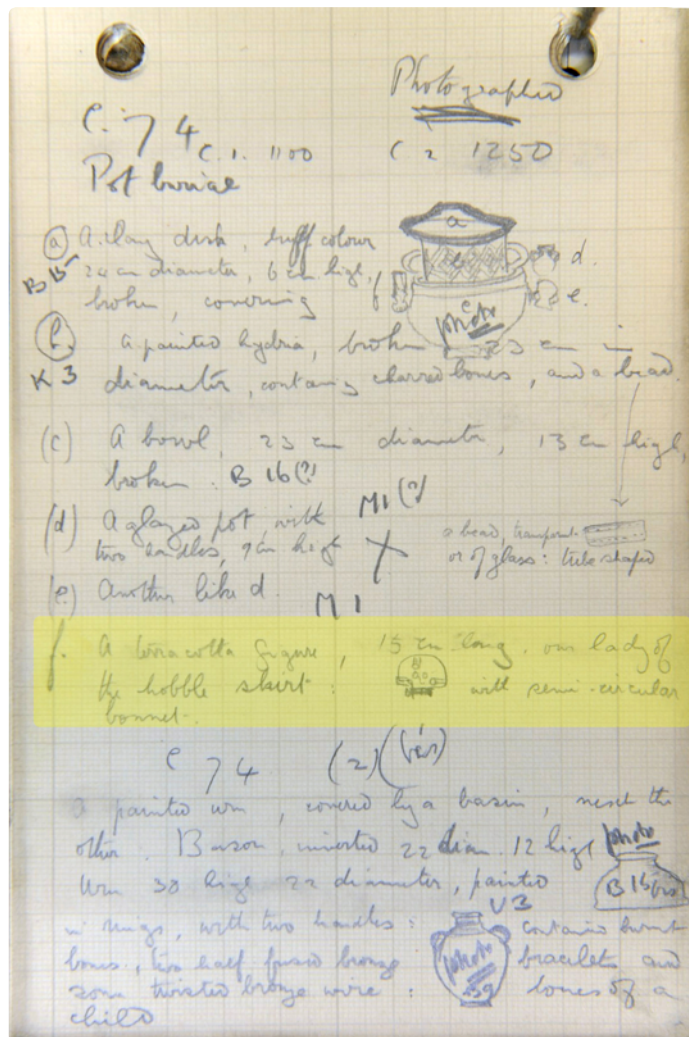 Photographed
C. 74 C. 1. 1100 C 2 1250
Pot burial
(a) A clay dish, buff colour
BB5 24 cm diameter, 6 cm high,
broken, covering
a
b
c
d.
e.
f
photo
(b) A painted hydria, broken, 23 cm in
K 3 diameter, containing charred bones, and a bead.
(c) A bowl, 23 cm diameter, 13 cm high,
broken. B 16 (?)
(d) A glazed pot, with M1 (?)
two handles, 9 cm high X
a bead, transparent
or of glass: tube shaped
(e) Another like d. M 1
f. A terracotta figure, 15 cm long, our lady of
the hobble skirt: with semi-circular
bonnet.
C 74 (2) (bis)
A painted urn, covered by a basin, next the
other. Bason, inverted 22 diam. 12 high photo
Urn 30 high 22 diameter, painted B 16 bis
in rings, with two handles: U3 contains burnt
bones, two half fused bronze photo bracelets and
some twisted bronze wire: bones of a
child